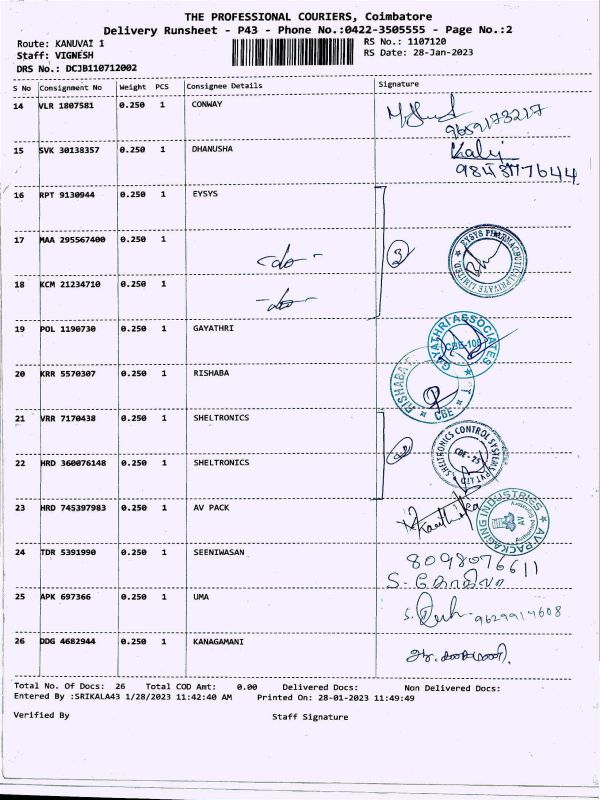 THE PROFESSIONAL COURIERS, Coimbatore
Delivery Runsheet - P43 - Phone No.:0422-3505555 - Page No.:2
Route: KANUVAI 1 RS No.: 1107120
Staff: VIGNESH RS Date: 28-Jan-2023
DRS No.: DCJB110712002
S No Consignment No Weight PCS Consignee Details Signature
14 VLR 1807581 0.250 1 CONWAY
9659173217
15 SVK 30138357 0.250 1 DHANUSHA Kaly
9843177644
16 RPT 9130944 0.250 1 EYSYS
17 MAA 295567400 0.250 1 -do- 3 EYSYS PHARMACEUTICAL PRIVATE LIMITED
18 KCM 21234710 0.250 1 -do-
19 POL 1190730 0.250 1 GAYATHRI GAYATHRI ASSOCIATES CBE-108
20 KRR 5570307 0.250 1 RISHABA RISHABA CBE
21 VRR 7170438 0.250 1 SHELTRONICS
22 HRD 360076148 0.250 1 SHELTRONICS SHELTRONICS CONTROL SYSTEMS PVT LTD CBE - 25
23 HRD 745397983 0.250 1 AV PACK AV PACKAGING INDUSTRIES AV
24 TDR 5391990 0.250 1 SEENIWASAN 8098076611
S. கோகிலா
25 APK 697366 0.250 1 UMA 9629914608
26 DDG 4682944 0.250 1 KANAGAMANI
Total No. Of Docs: 26 Total COD Amt: 0.00 Delivered Docs: Non Delivered Docs:
Entered By :SRIKALA43 1/28/2023 11:42:40 AM Printed On: 28-01-2023 11:49:49
Verified By Staff Signature